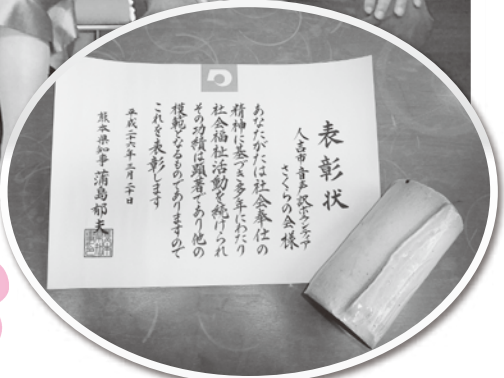 表彰状
人吉市音声訳ボランティア
さくらの会様
あなたがたは社会奉仕の
精神に基づき多年にわたり
社会福祉活動を続けられ
その功績は顕著であり他の
模範となるものでありますので
これを表彰します
平成二十六年三月二十日
熊本県知事 蒲島郁夫